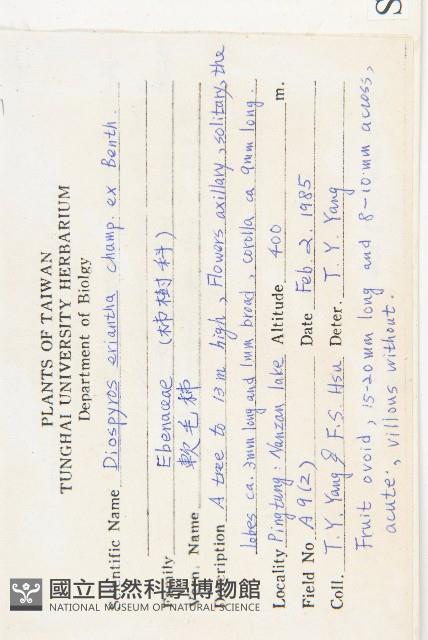 PLANTS OF TAIWAN
TUNGHAI UNIVERSITY HERBARIUM
Department of Biolgy
Scientific Name Diospyros eriantha champ. ex Benth.
Family Ebenaceae (柿樹科)
Name 軟毛柿
Description A tree to 13m high, Flowers axillary, solitary, the
lobes ca. 3mm long and 1mm broad, corolla ca 9mm long.
Locality Pingtung: Nanzan lake Altitude 400 m.
Field No A9(2) Date Feb. 2. 1985
Coll. T.Y. Yang & F.S. Hsu Deter. T. Y. Yang
Fruit ovoid, 15-20mm long and 8-10mm across,
acute, villous without.
國立自然科學博物館
NATIONAL MUSEUM OF NATURAL SCIENCE
S